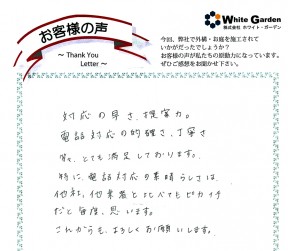 White Garden
株式会社 ホワイト・ガーデン
お客様の声
～ Thank You
Letter ～
今回、弊社で外構・お庭を施工されて
いかがだったでしょうか？
お客様の声が私たちの原動力になっています。
ぜひご感想をお聞かせ下さい。
対応の早さ、提案力。
電話対応の的確さ、丁寧さ
等々、とても満足しております。
特に、電話対応の素晴らしさは、
他社、他業者と比べてもピカイチ
だと毎度、思います。
これからも、よろしくお願いします。